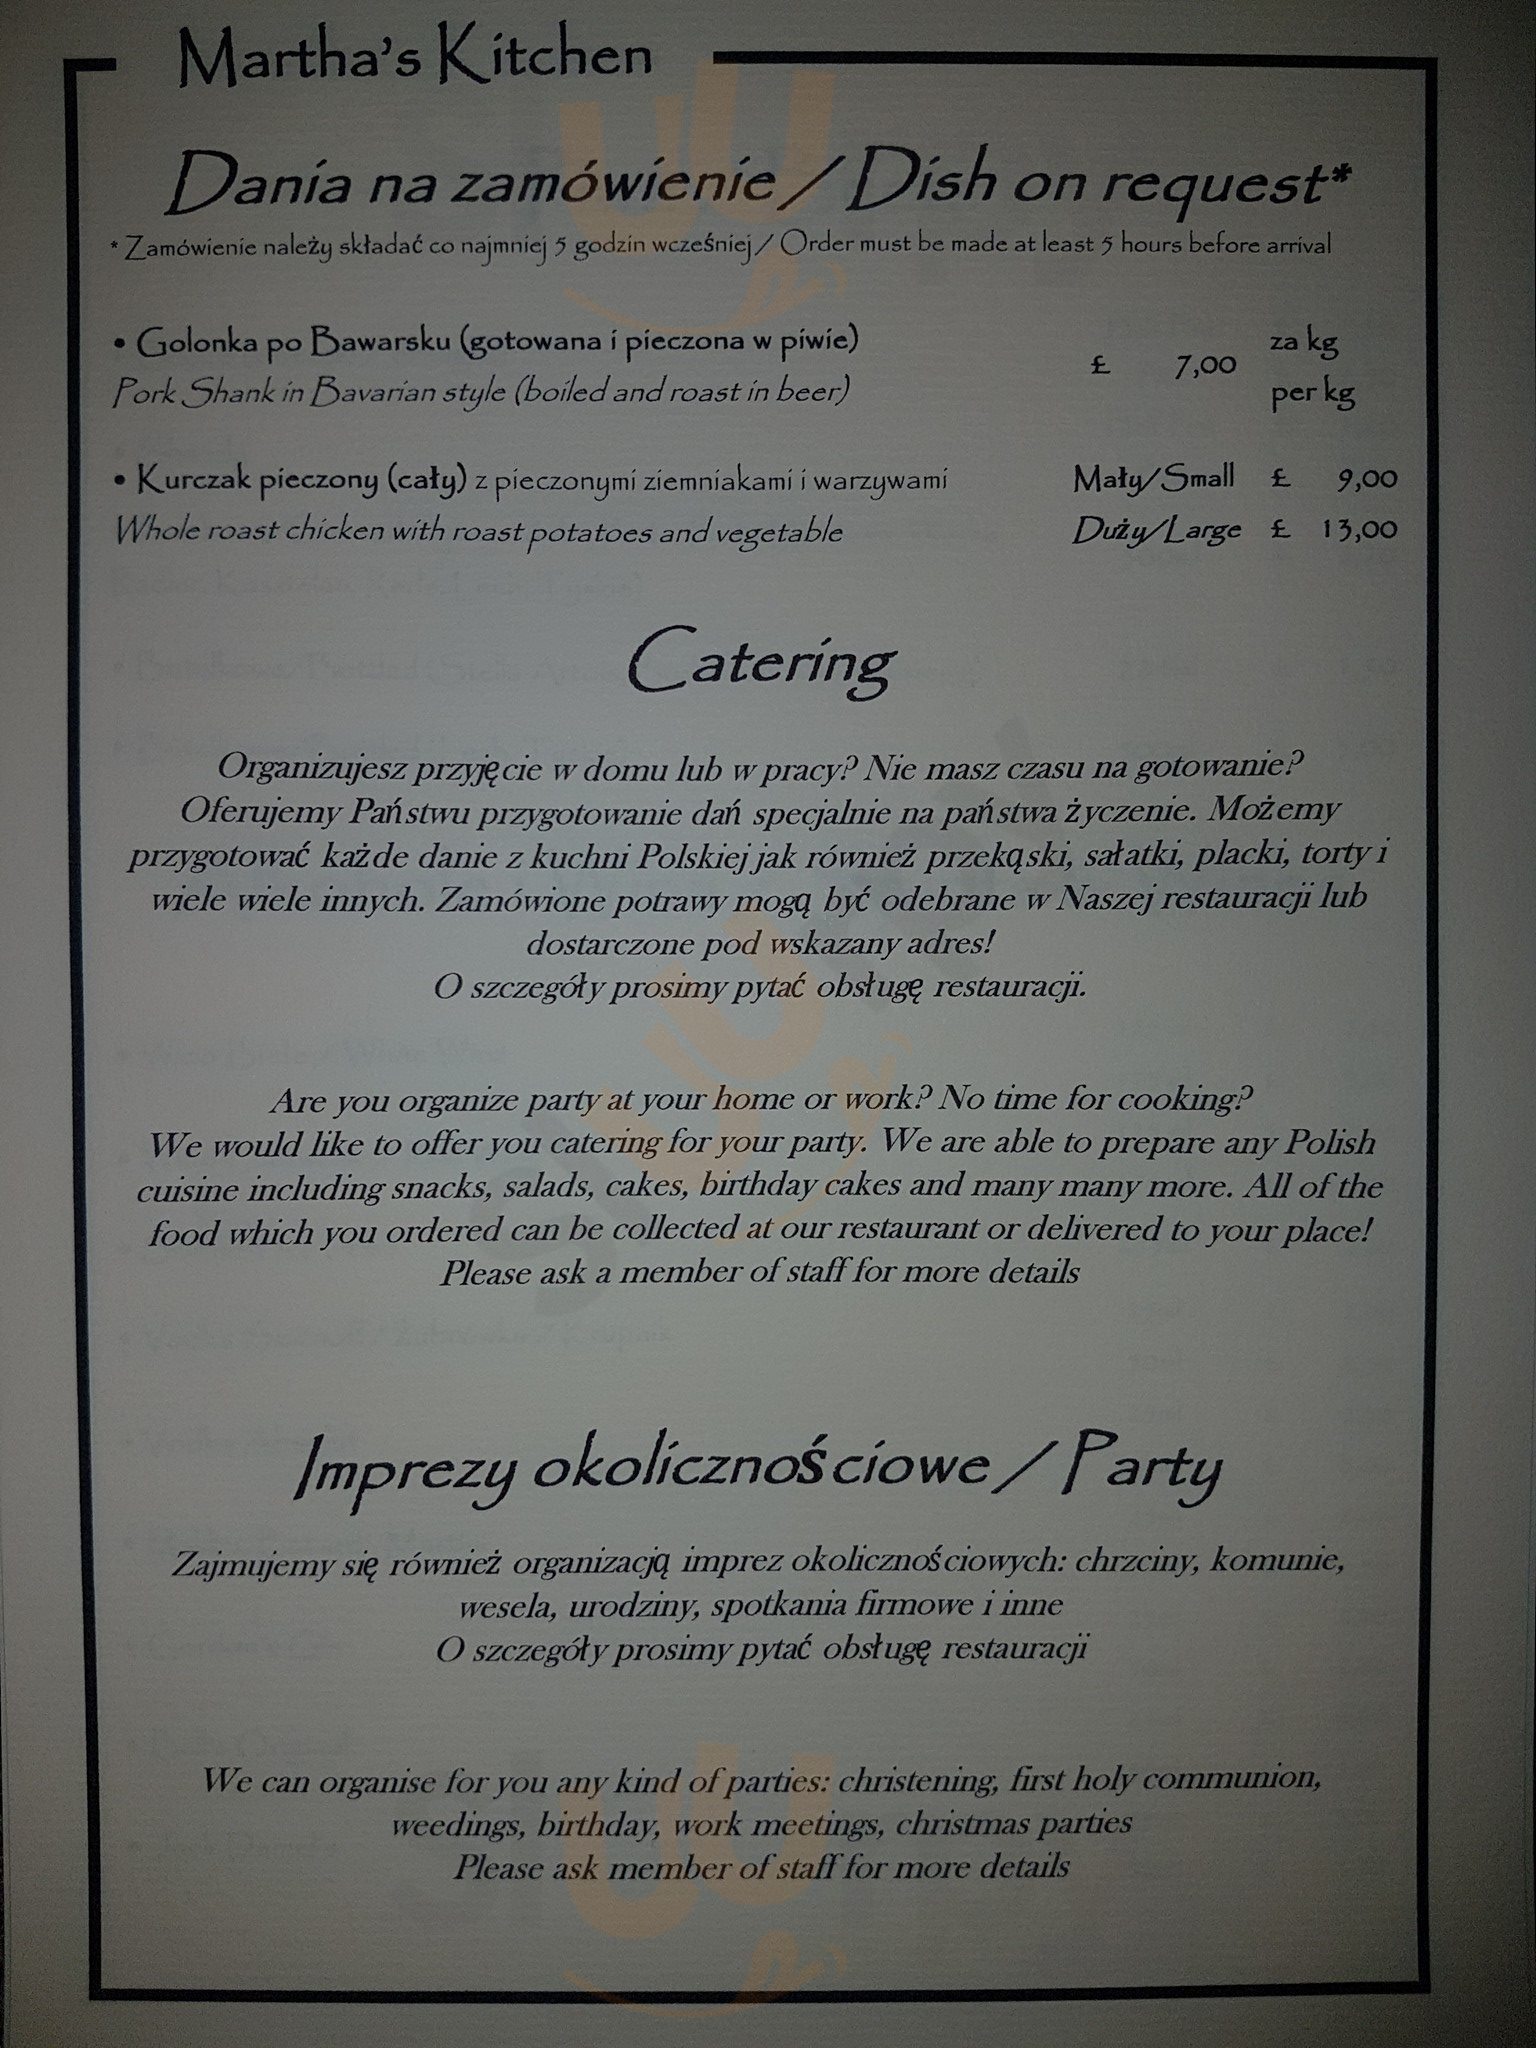 Martha's Kitchen
Dania na zamówienie / Dish on request*
* Zamówienie należy składać co najmniej 5 godzin wcześniej / Order must be made at least 5 hours before arrival
• Golonka po Bawarsku (gotowana i pieczona w piwie)
Pork Shank in Bavarian style (boiled and roast in beer)
£ 7,00
za kg
per kg
• Kurczak pieczony (cały) z pieczonymi ziemniakami i warzywami Mały/Small £ 9,00
Whole roast chicken with roast potatoes and vegetable Duży/Large £ 13,00
Catering
Organizujesz przyjęcie w domu lub w pracy? Nie masz czasu na gotowanie?
Oferujemy Państwu przygotowanie dań specjalnie na państwa życzenie. Możemy
przygotować każde danie z kuchni Polskiej jak również przekąski, sałatki, placki, torty i
wiele wiele innych. Zamówione potrawy mogą być odebrane w Naszej restauracji lub
dostarczone pod wskazany adres!
O szczegóły prosimy pytać obsługę restauracji.
Are you organize party at your home or work? No time for cooking?
We would like to offer you catering for your party. We are able to prepare any Polish
cuisine including snacks, salads, cakes, birthday cakes and many many more. All of the
food which you ordered can be collected at our restaurant or delivered to your place!
Please ask a member of staff for more details
Imprezy okolicznościowe / Party
Zajmujemy się również organizacją imprez okolicznościowych: chrzciny, komunie,
wesela, urodziny, spotkania firmowe i inne
O szczegóły prosimy pytać obsługę restauracji
We can organise for you any kind of parties: christening, first holy communion,
weedings, birthday, work meetings, christmas parties
Please ask member of staff for more details